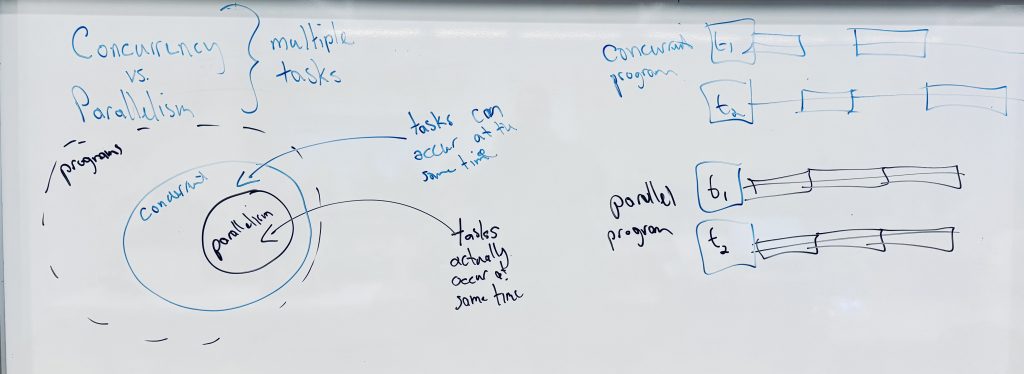 Concurrency
vs.
Parallelism
multiple
tasks
programs
concurrent
parallelism
tasks can
occur at the
same time
tasks
actually
occur at
same time
concurrent
program
t1
t2
parallel
program
t1
t2